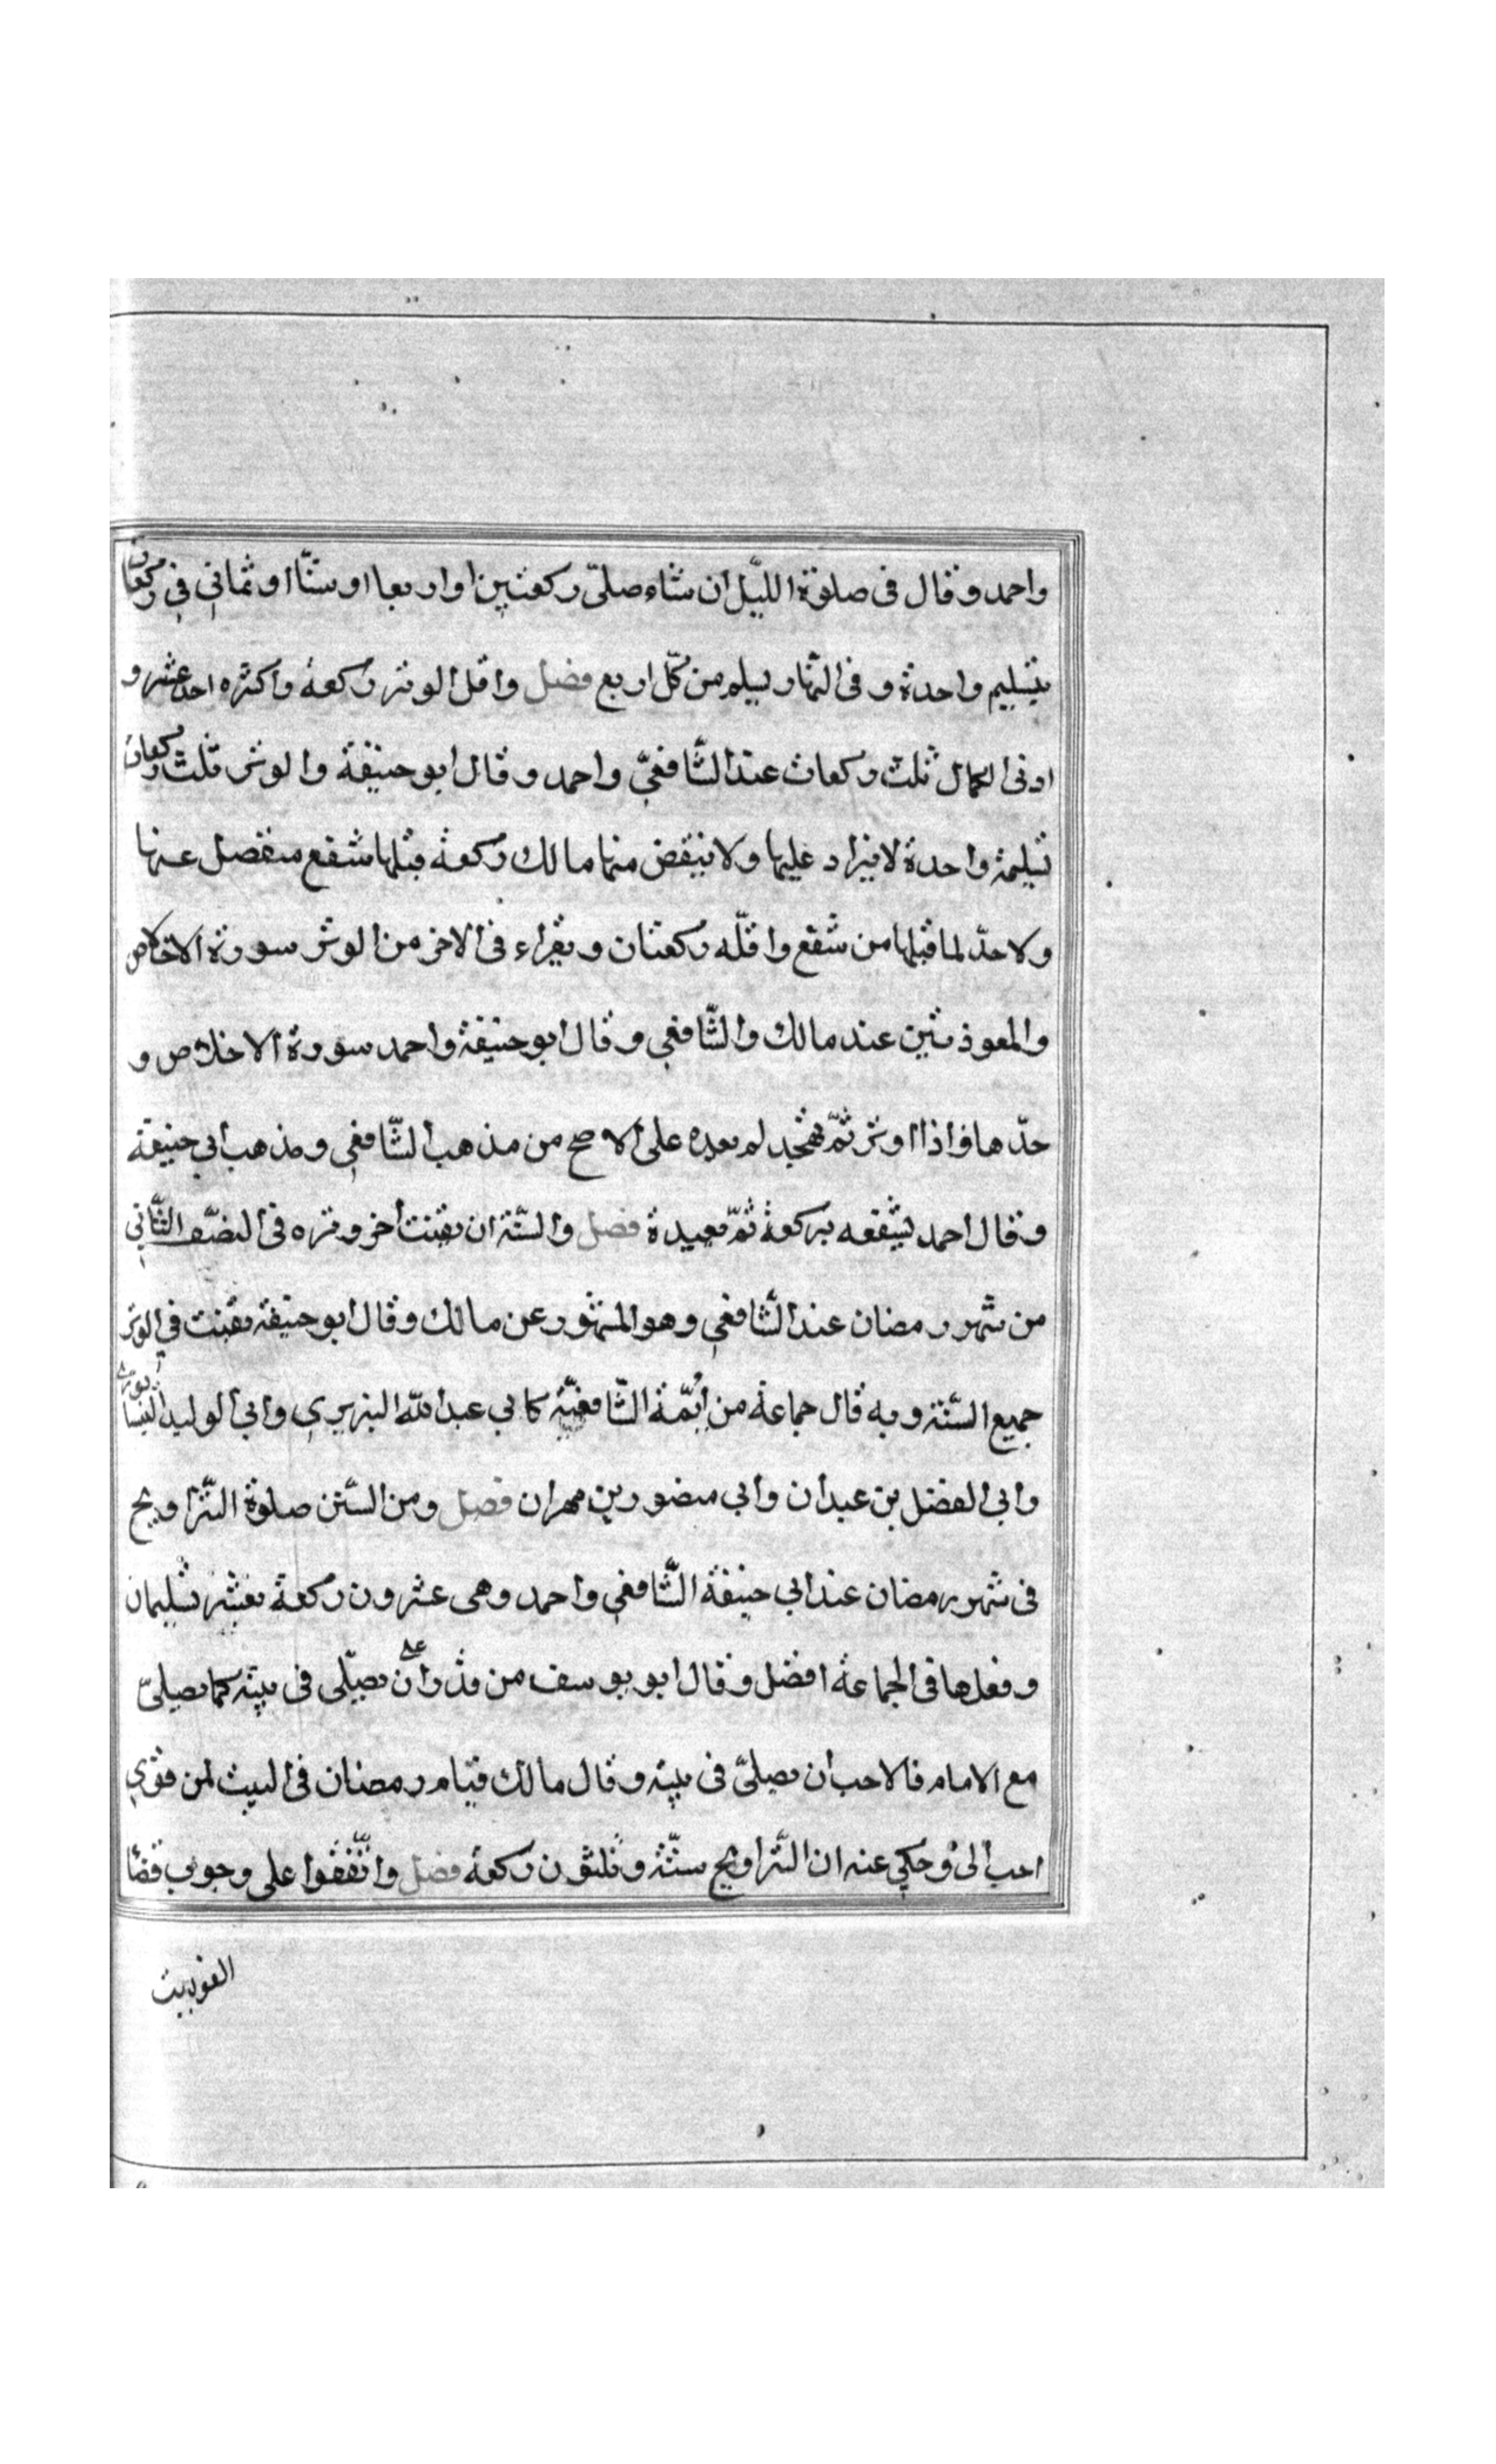 واحمد وقال فى صلوة الليّل ان شاء صلىّ ركعتين او اربعا او ستّا او ثمانى فى ركعات
بتسليم واحدة و فى النّهار يسلم من كلّ اربع فصل واقل الوتر ركعة واكثره احد عشر و
ادنى الكمال ثلث ركعات عند الشّافعىّ واحمد وقال ابو حنيفة والوتر ثلث ركعات
تسليمة واحدة لا يزاد عليها ولا ينقض منها مالك ركعة قبلها شفع منفصل عنها
ولا حدّ لما قبلها من شفع واقلّه ركعتان ويقراء فى الاخر من الوتر سورة الاخلاص
والمعوذتين عند مالك والشّافعي وقال ابو حنيفة واحمد سورة الاخلاص و
حدّها فاذا اوتر ثمّ تهجّد لم يعده على الاصح من مذهب الشّافعي ومذهب ابي حنيفة
وقال احمد يشفعه بركعة ثمّ يعيدة فصل والسّنة ان يقنت اخر وتره فى النصّف الثّاني
من شهر رمضان عند الشّافعي وهو المشهور عن مالك وقال ابو حنيفة يقنت في الوتر
جميع السّنة وبه قال جماعة من ائمّة الشّافعيّة كابي عبد اللّه الزبيري وابي الوليد النيسابوري
وابى الفضل بن عبدان وابي منصور بن مهران فصل ومن السّنن صلوة التّراويح
فى شهر رمضان عند ابي حنيفة الشّافعي واحمد وهى عشرون ركعة بعشر تسليمات
وفعلها فى الجماعة افضل وقال ابو يوسف من قدر على ان يصلّى فى بيته كما يصلىّ
مع الامام فالاحب ان يصلىّ فى بيته وقال مالك قيام رمضان فى البيت لمن قوي
احب الىّ وحكي عنه ان التّراويح ستّة وثلثون ركعة فصل واتّفقوا على وجوب قضا
الفوايت